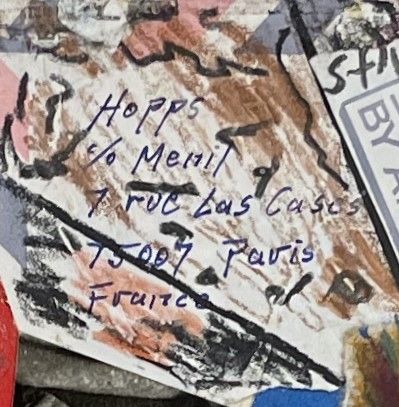 Hopps
c/o Menil
7 rue Las Cases
75007 Paris
France
BY A